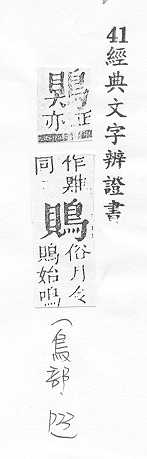 41經典文字辨證書
鶪正
亦作
同
鵙俗月令
鵙始鳴
(鳥部, 723)